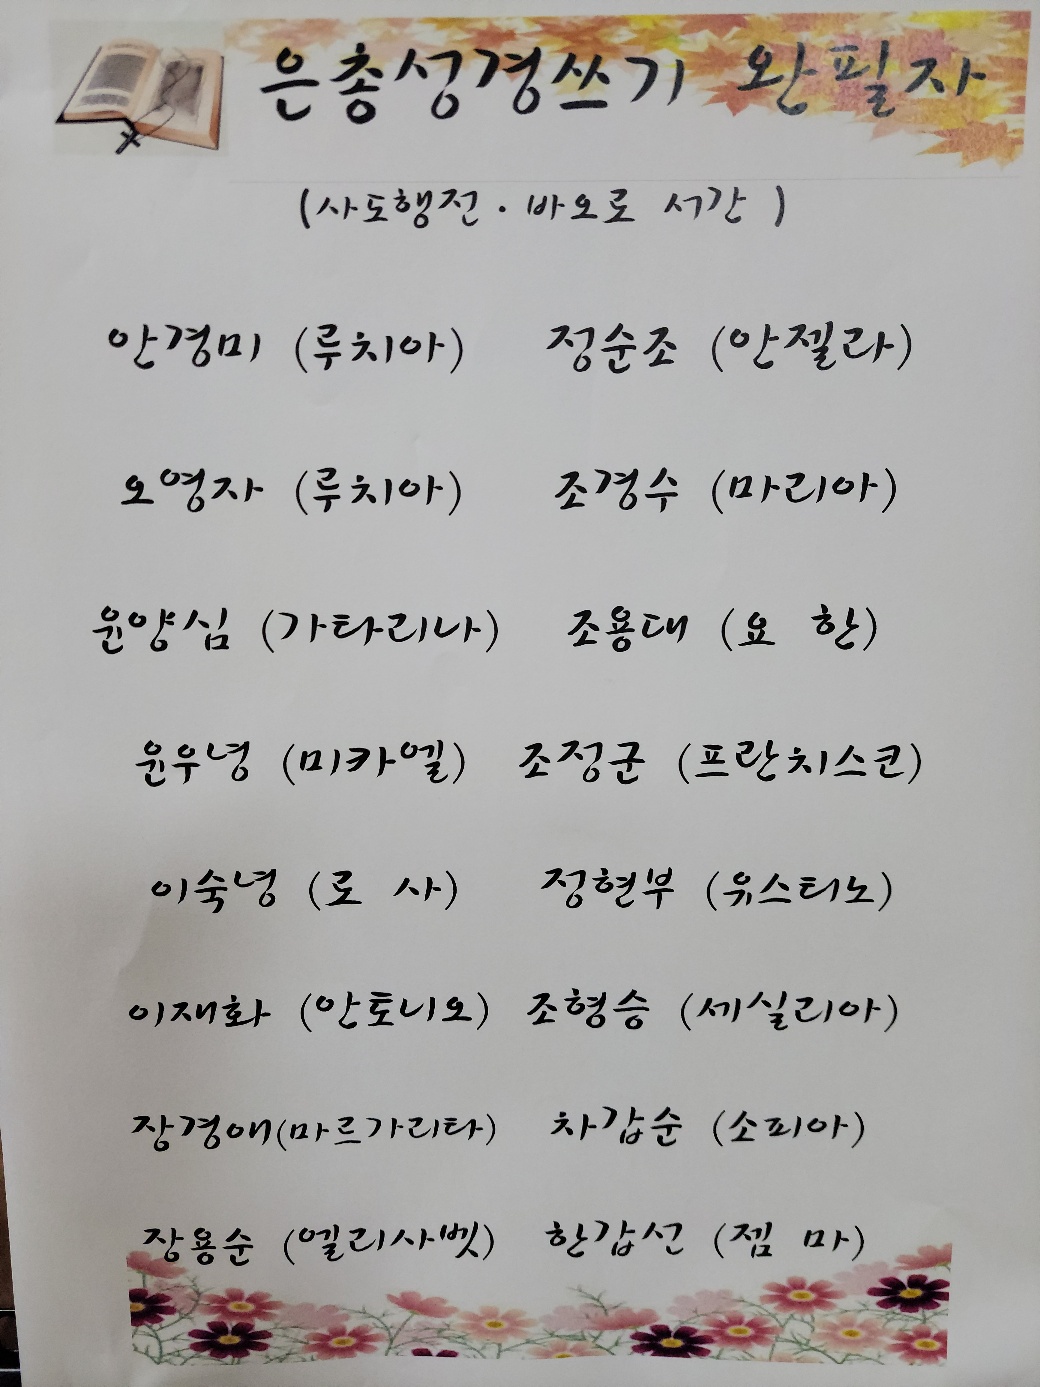 은총성경쓰기 완필자
(사도행전·바오로 서간)
안경미 (루치아) 정순조 (안젤라)
오영자 (루치아) 조경수 (마리아)
윤양심 (가타리나) 조용대 (요 한)
윤우녕 (미카엘) 조정군 (프란치스코)
이숙녕 (로 사) 정현부 (유스티노)
이재화 (안토니오) 조형승 (세실리아)
장경애(마르가리타) 차갑순 (소피아)
장용순 (엘리사벳) 한갑선 (젬 마)